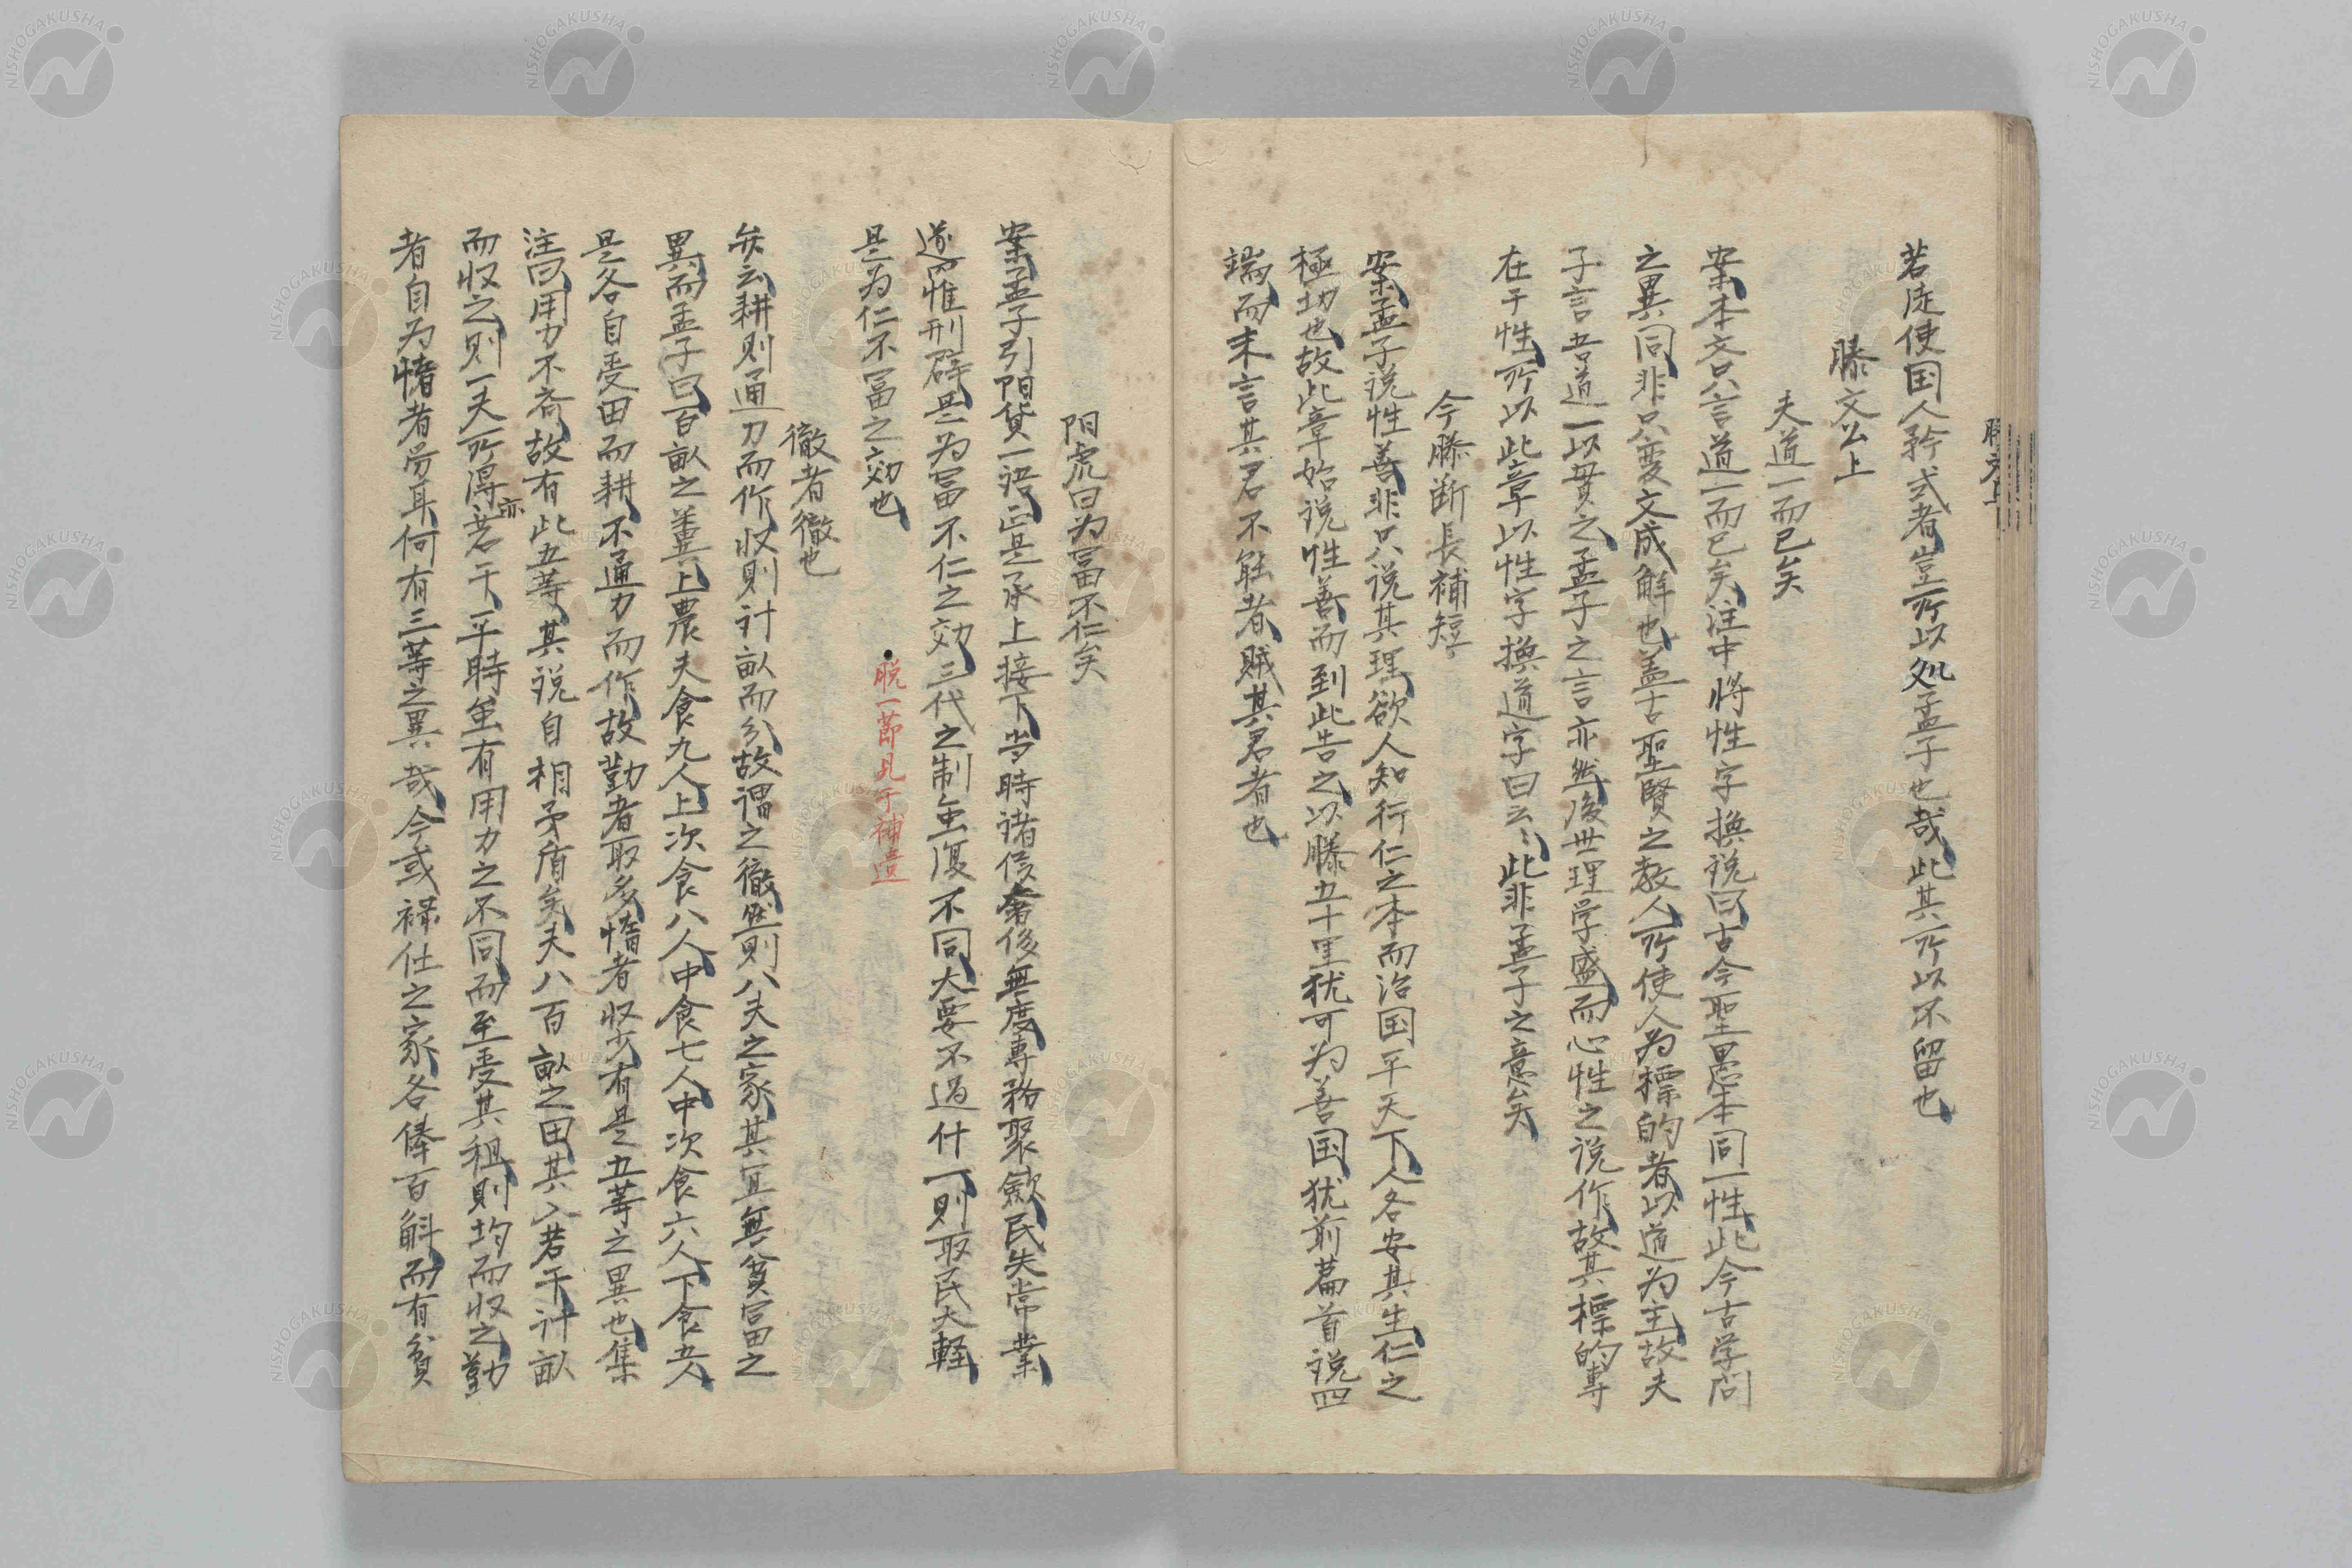 若徒使国人矜式者豈所以処孟子也哉此其所以不留也
滕文公上
夫道一而已矣
案本文只言道一而已矣注中将性字換説曰古今聖愚本同一性此今古学問
之異同非只変文成解也蓋古聖賢之教人所使人為標的者以道为主故夫
子言吾道一以貫之孟子之言亦然後世理学盛而心性之説作故其標的専
在于性所以此章以性字換道字曰云〻此非孟子之意矣
今滕断長補短
案孟子説性善非只説其理欲人知行仁之本而治国平天下人各安其生仁之
極功也故此章始説性善而到此告之以滕五十里犹可为善国犹前篇首説四
端而末言其君不能者賊其君者也
阳虎曰为富不仁矣
案孟子引阳貨一語正是承上接下当時諸侯奢侈無度専務聚斂民失常業
遂罹刑辟是为富不仁之効三代之制虽復不同大要不過什一則取民大軽
是为仁不富之効也
脱一節見于補遺
徹者徹也
矣云耕則通力而作収則計畝而分故謂之徹然則八夫之家其宜無貧富之
異而孟子曰百畝之糞上農夫食九人上次食八人中食七人中次食六人下食五人
是各自受田而耕不通力而作故勤者取多惰者収少有是五等之異也集
注曰用力不斉故有此五等其説自相矛盾矣夫八百畝之田其入若干計畝
而収之則一夫所得亦若干平時虽有用力之不同而至受其租則均而収之勤
者自为惰者労耳何有三等之異哉今或禄仕之家各俸百斛而有貧